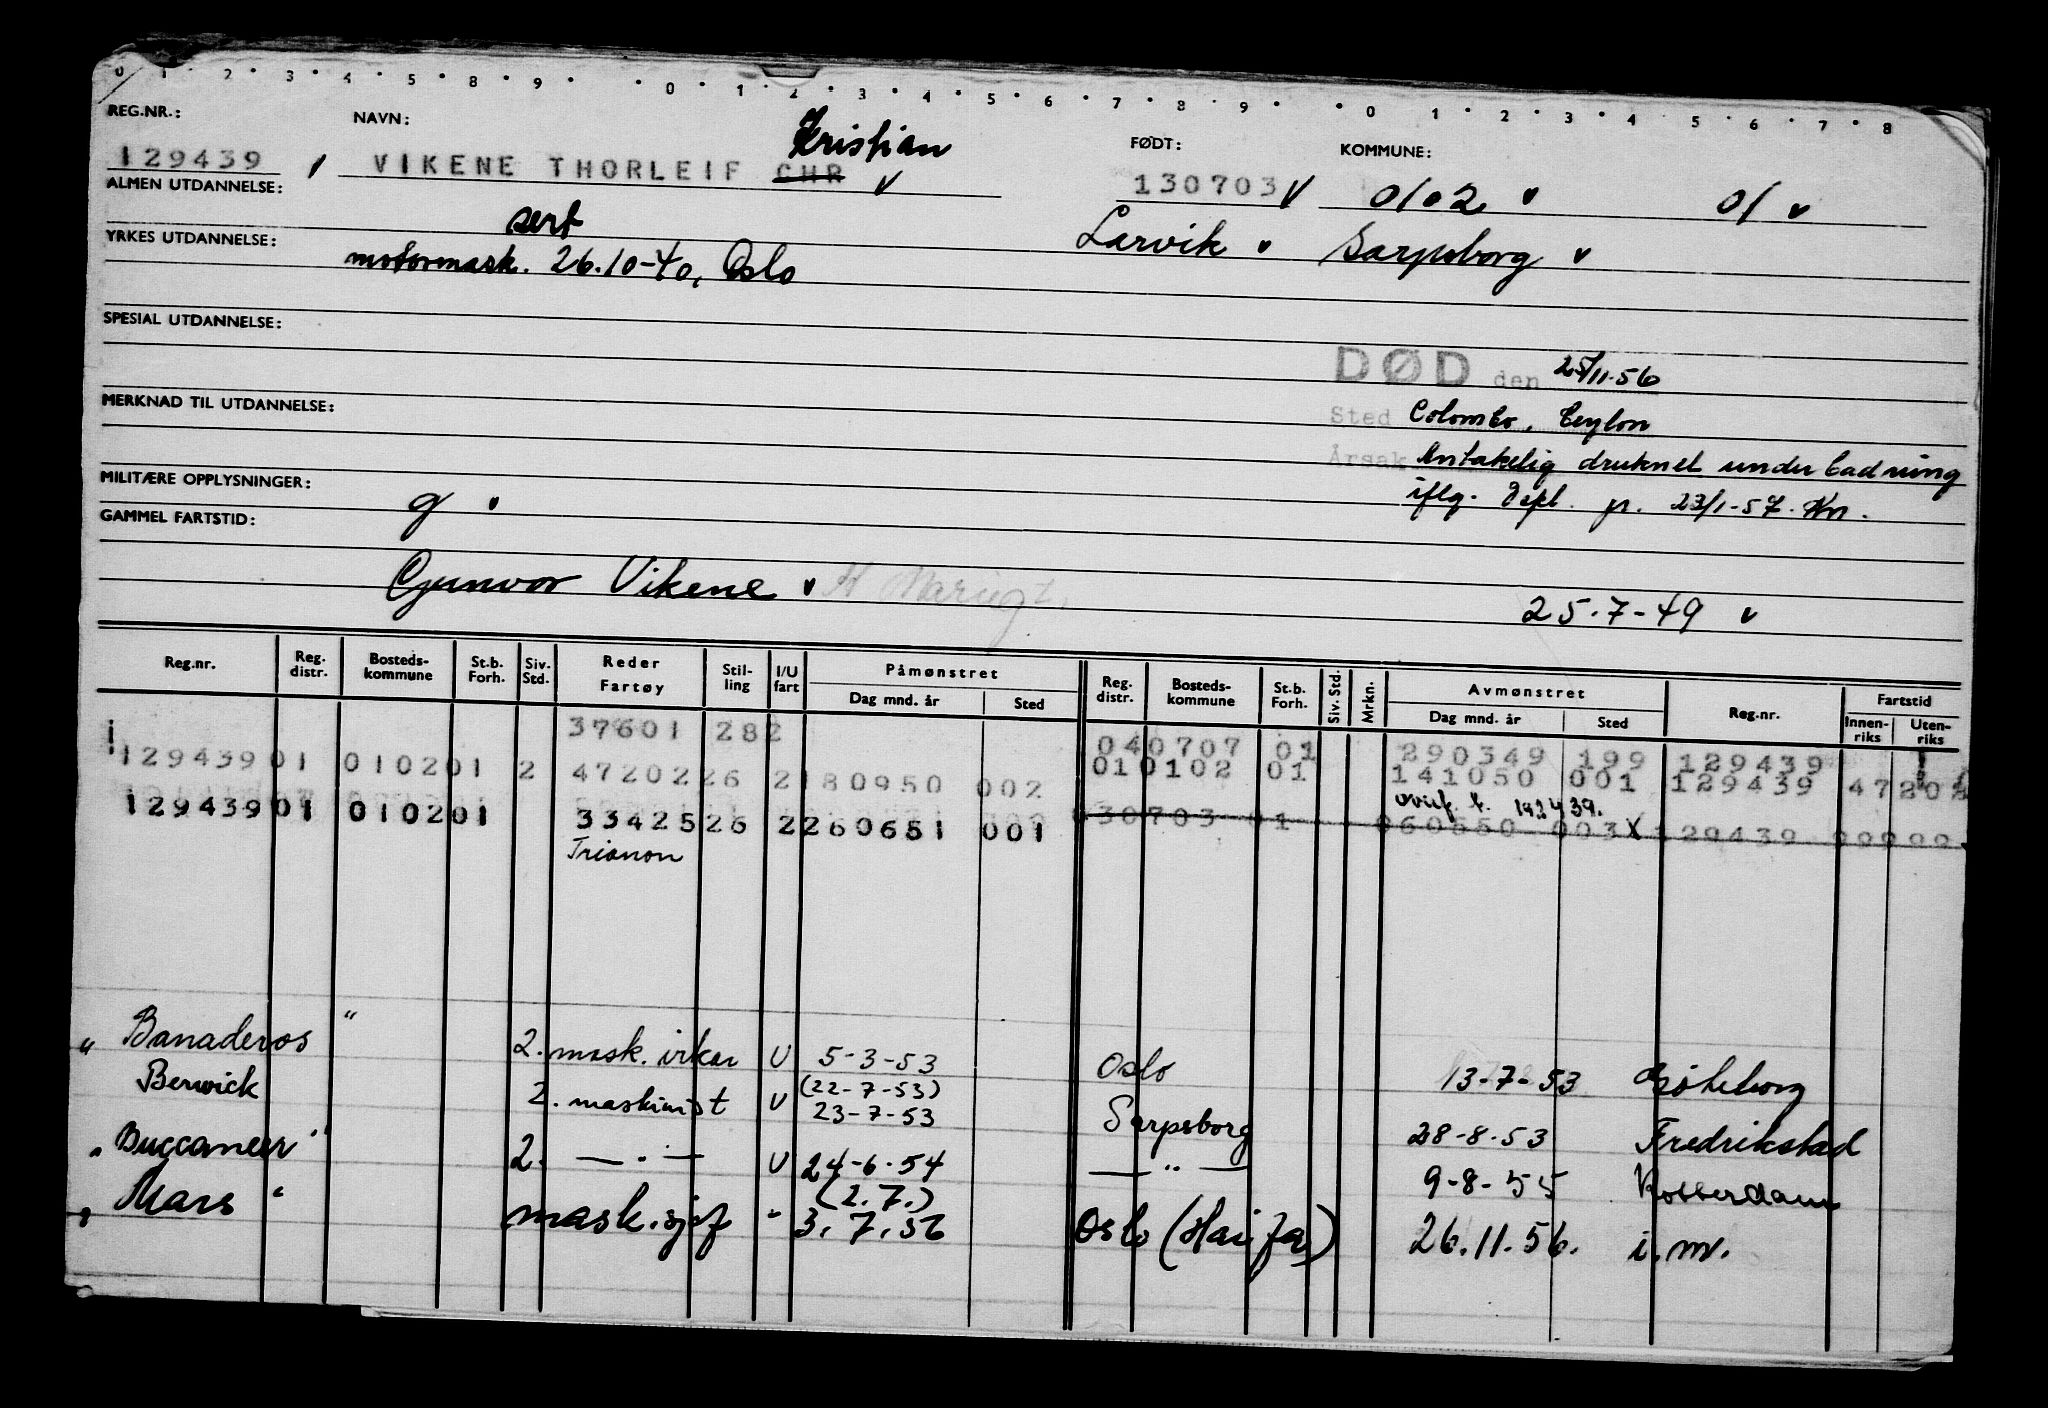 0 1 2 3 4 5 6 7 8 9 0 1 2 3 4 5 6 7 8 9 0 1 2 3 4 5 6 7 8
REG.NR.: NAVN: FØDT: KOMMUNE:
Kristian
129439 VIKENE THORLEIF CHR 130703 0102 01
ALMEN UTDANNELSE:
Larvik Sarpsborg
sert
YRKES UTDANNELSE: motormask. 26.10-40, Oslo
SPESIAL UTDANNELSE:
DØD den 25/11-56
MERKNAD TIL UTDANNELSE: Sted Colombo, Ceylon
Årsak Antakelig druknet under badning
MILITÆRE OPPLYSNINGER: g iflg. Dept. 23/1-57. Kn.
GAMMEL FARTSTID:
Gunvor Vikene 25.7-49
Reg.nr. Reg. distr. Bosteds-kommune St.b. Forh. Siv. Std. Reder Fartøy Stil-ling I/U fart Påmønstret Dag mnd. år Sted Reg. distr. Bosteds-kommune St.b. Forh. Siv. Std. Mrkn. Avmønstret Dag mnd. år Sted Reg.nr. Fartstid Innen-riks Uten-riks
37601 282 040707 01 290349 199 129439
129439 01 010201 2 47202 26 2 180950 002 010102 01 141050 001 129439 47202
129439 01 010201 33425 26 2 260651 001 30703 01 060550 003 X 129439
Trianon
" Banaderos " 2. mask. irkar U 5-3-53 Oslo 13-7-53 Gøteborg
Berwick 2. maskinist U (22-7-53) 23-7-53 Sarpsborg 28-8-53 Fredrikstad
" Buccaneer " 2. — " — U 24-6-54 — " — 9-8-55 Rotterdam
" Mars " mask.sjef " (2.7.) 3.7.56 Oslo (Haifa) 26.11.56. i.m.